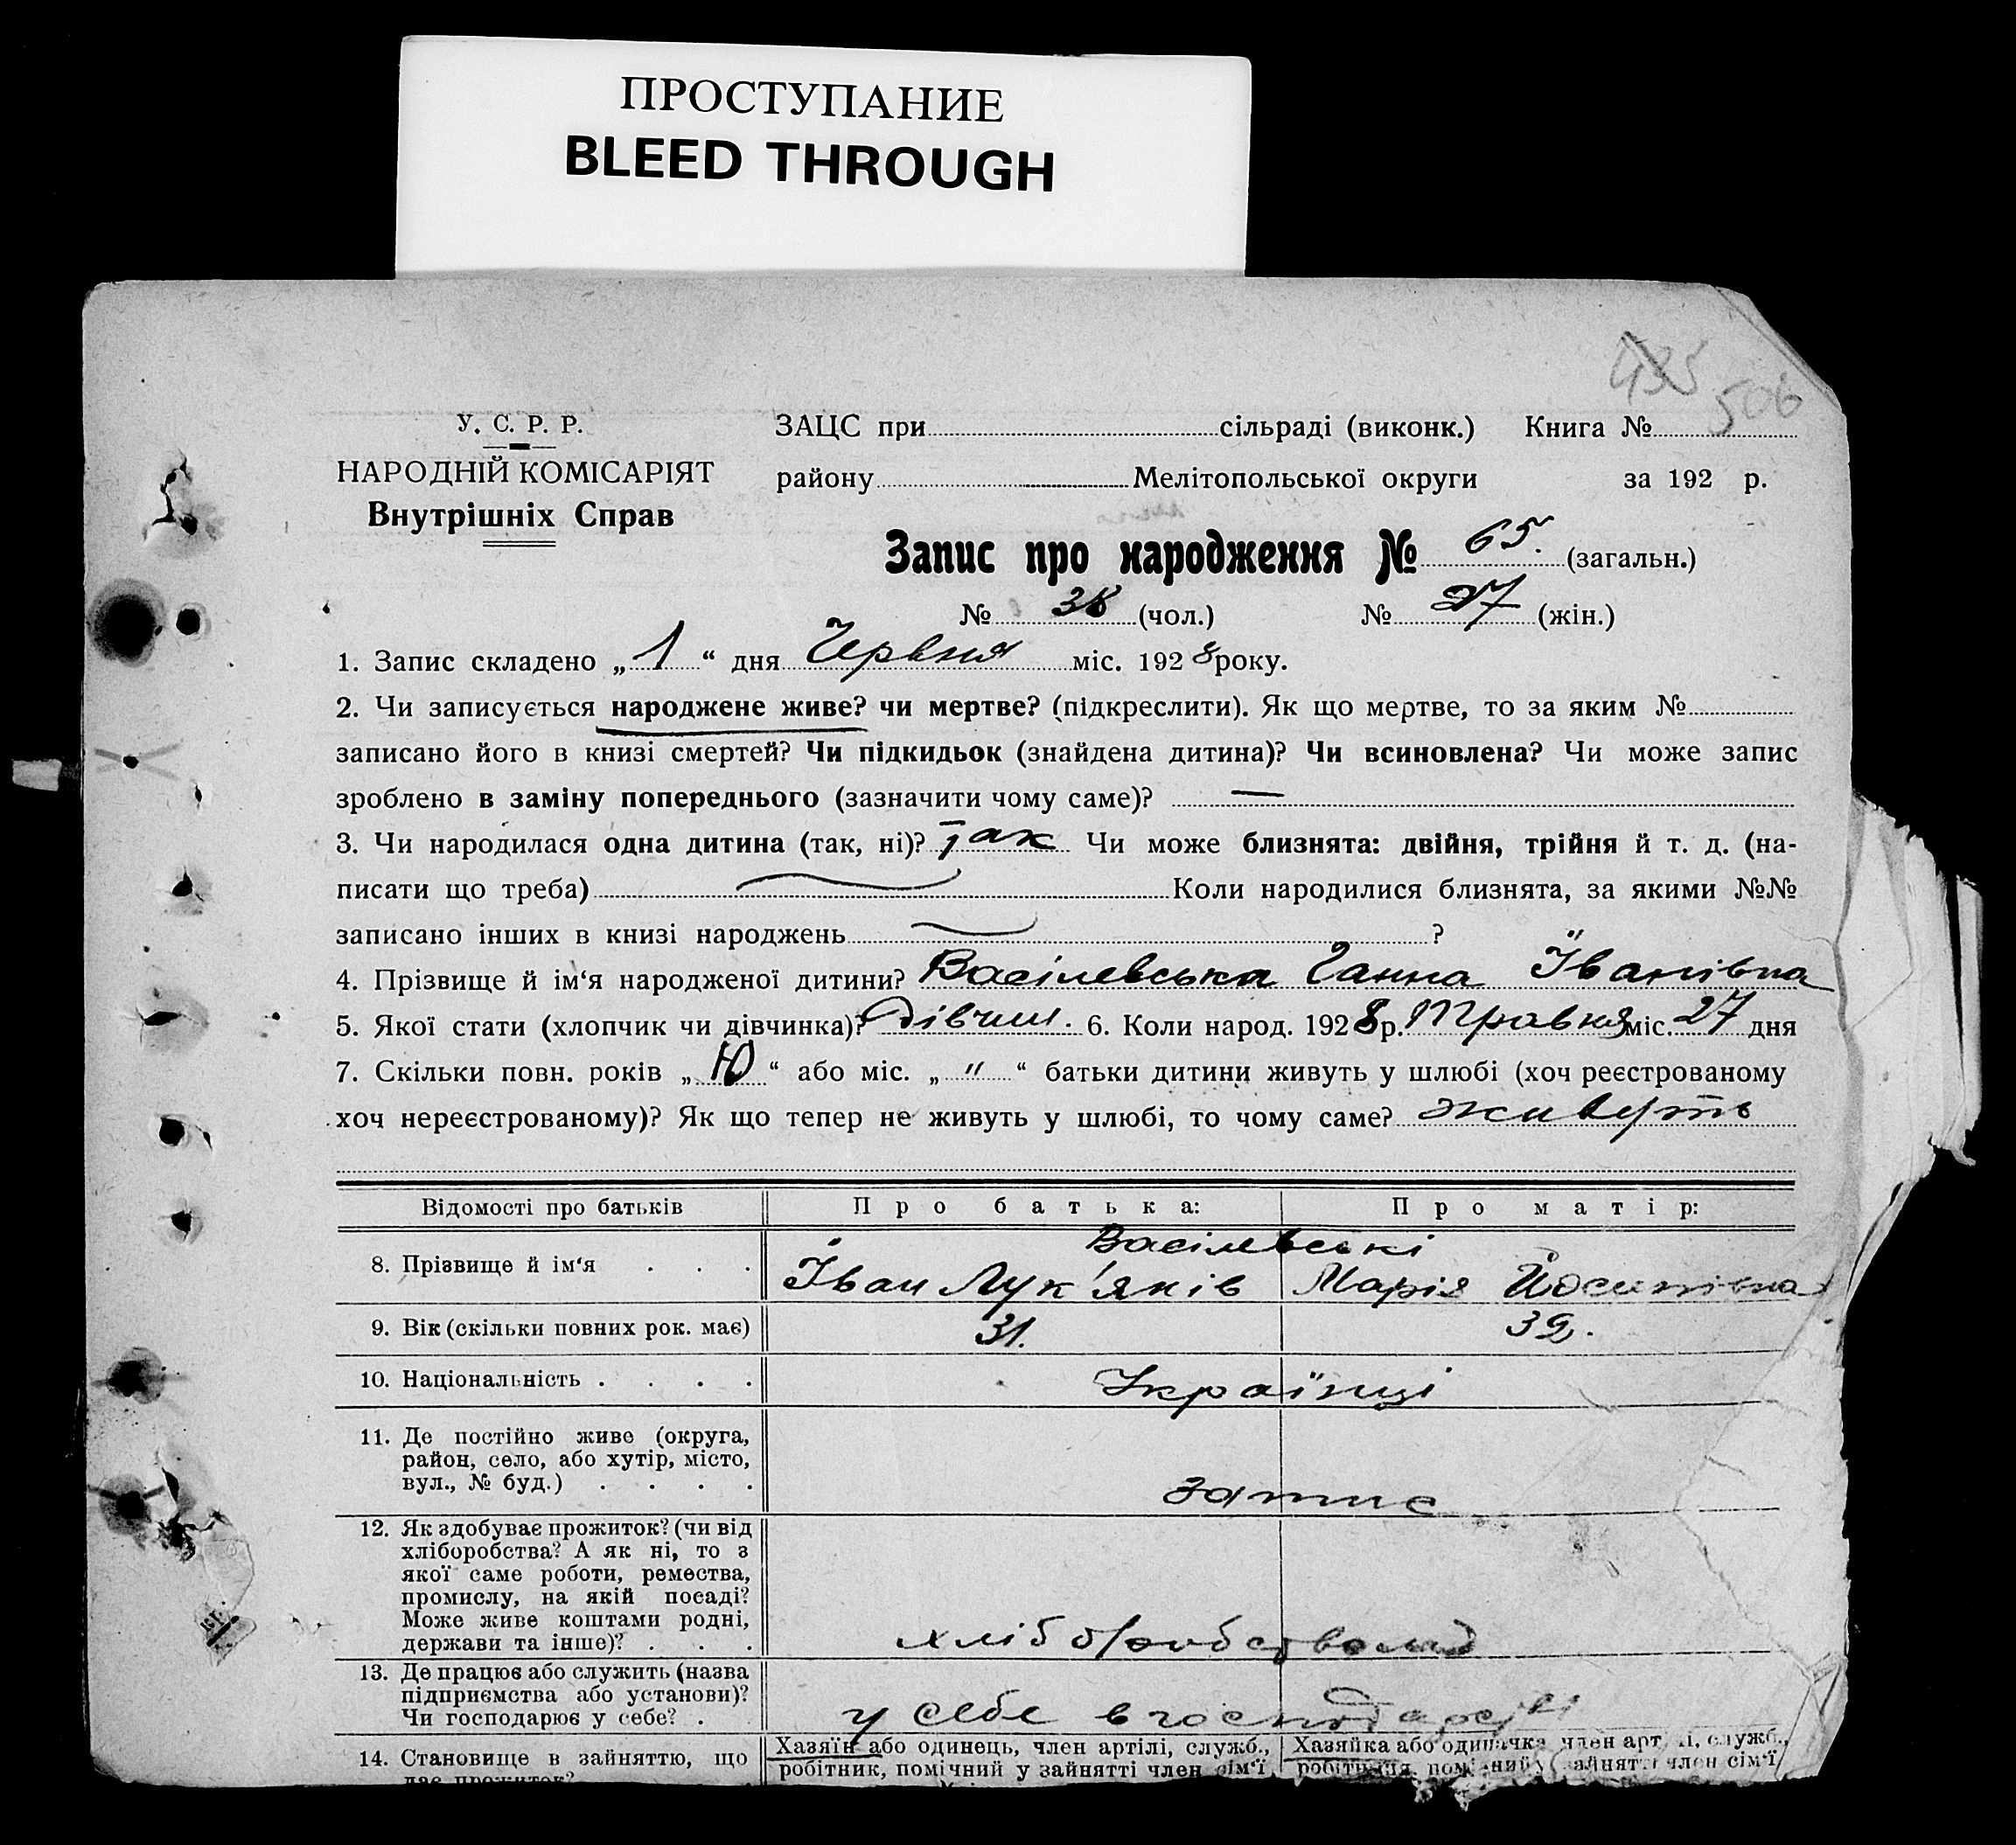 ПРОСТУПАНИЕ
BLEED THROUGH
435 506
У. С. Р. Р.
НАРОДНІЙ КОМІСАРІЯТ
Внутрішніх Справ
ЗАЦС при сільраді (виконк.) Книга №
району Мелітопольської округи за 192 р.
Запис про народження № 65. (загальн.)
№ 38 (чол.) № 27 (жін.)
1. Запис складено „ 1 “ дня Червня міс. 192 8 року.
2. Чи записується народжене живе? чи мертве? (підкреслити). Як що мертве, то за яким №
записано його в книзі смертей? Чи підкидьок (знайдена дитина)? Чи всиновлена? Чи може запис
зроблено в заміну попереднього (зазначити чому саме)? —
3. Чи народилася одна дитина (так, ні)? так Чи може близнята: двійня, трійня й т. д. (на-
писати що треба) Коли народилися близнята, за якими №№
записано інших в книзі народжень ?
4. Прізвище й ім‘я народженої дитини? Васілевська Ганна Іванівна
5. Якої стати (хлопчик чи дівчинка)? Дівчин. 6. Коли народ. 192 8 р. Травня міс. 27 дня
7. Скільки повн. років „ 10 “ або міс. „ " “ батьки дитини живуть у шлюбі (хоч реєстрованому
хоч нереєстрованому)? Як що тепер не живуть у шлюбі, то чому саме? живуть
Відомості про батьків Про батька: Про матір:
Васілевські
8. Прізвище й ім‘я . . . Іван Лук'янів Марія Йосипівна
9. Вік (скільки повних рок. має) 31. 32.
10. Національність . . . . Українці
11. Де постійно живе (округа,
район, село, або хутір, місто,
вул., № буд.) . . . .
12. Як здобуває прожиток? (чи від
хліборобства? А як ні, то з
якої саме роботи, ремества,
промислу, на якій посаді?
Може живе коштами родні,
держави та інше)? . . . хліборобством
13. Де працює або служить (назва
підприємства або установи)?
Чи господарює у себе? . у себе в господарстві
14. Становище в зайняттю, що Хазяїн або одинець, член артілі, служб., Хазяйка або одиначка член артілі, служб.,
дає прожиток? робітник, помічний у зайнятті член сім‘ї, робітниця, помічний у зайнятті член сім‘ї